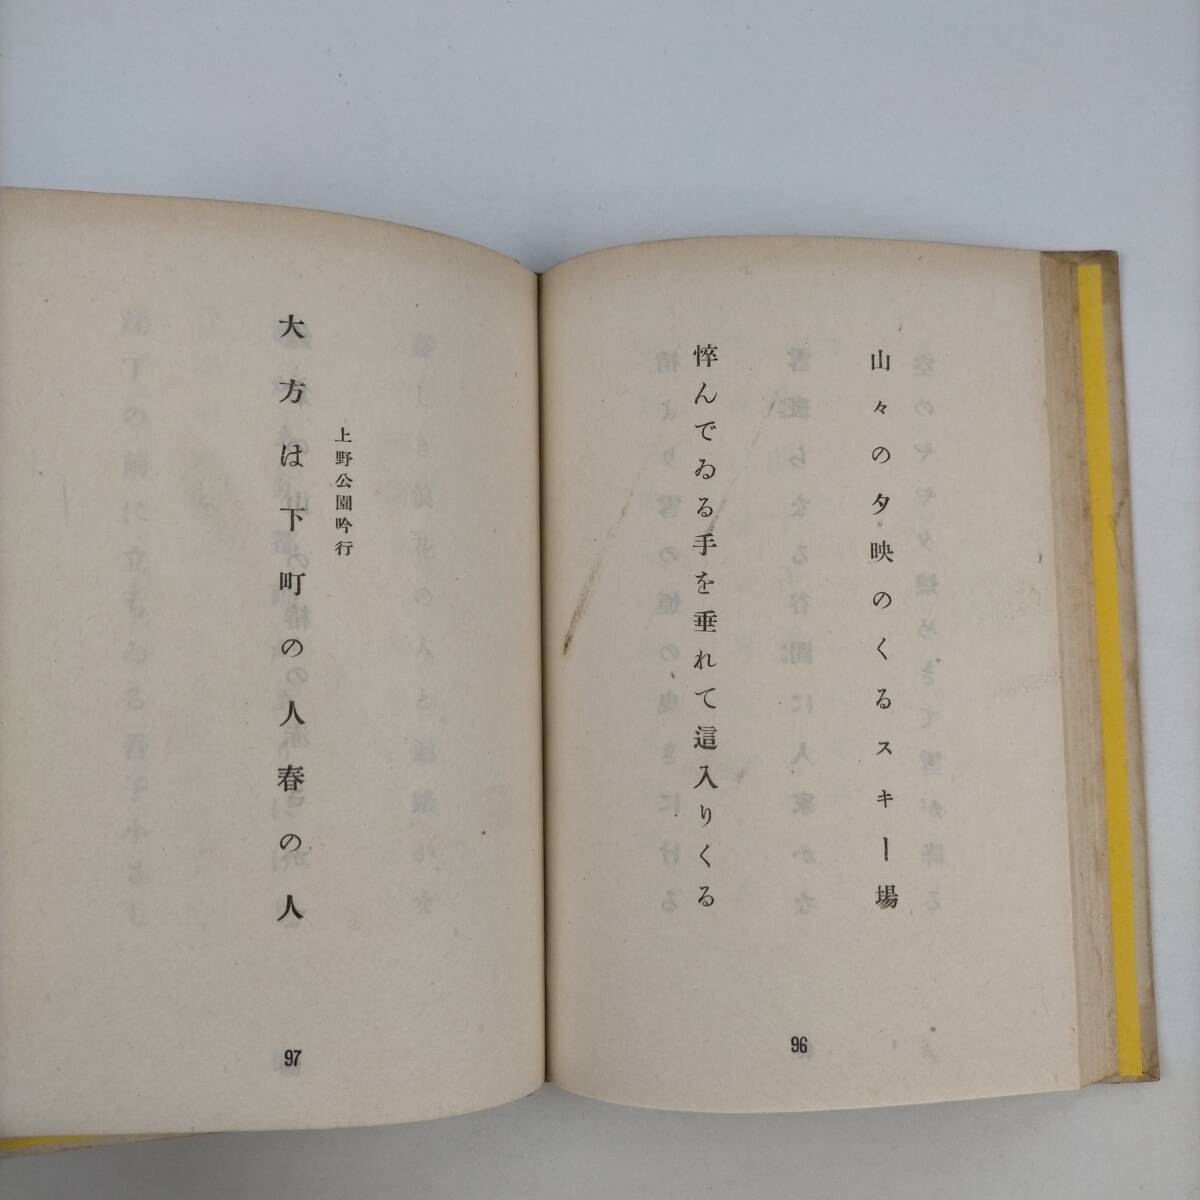 山々の夕映のくるスキー場
悴んでゐる手を垂れて這入りくる
96
上野公園吟行
大方は下町の人春の人
97